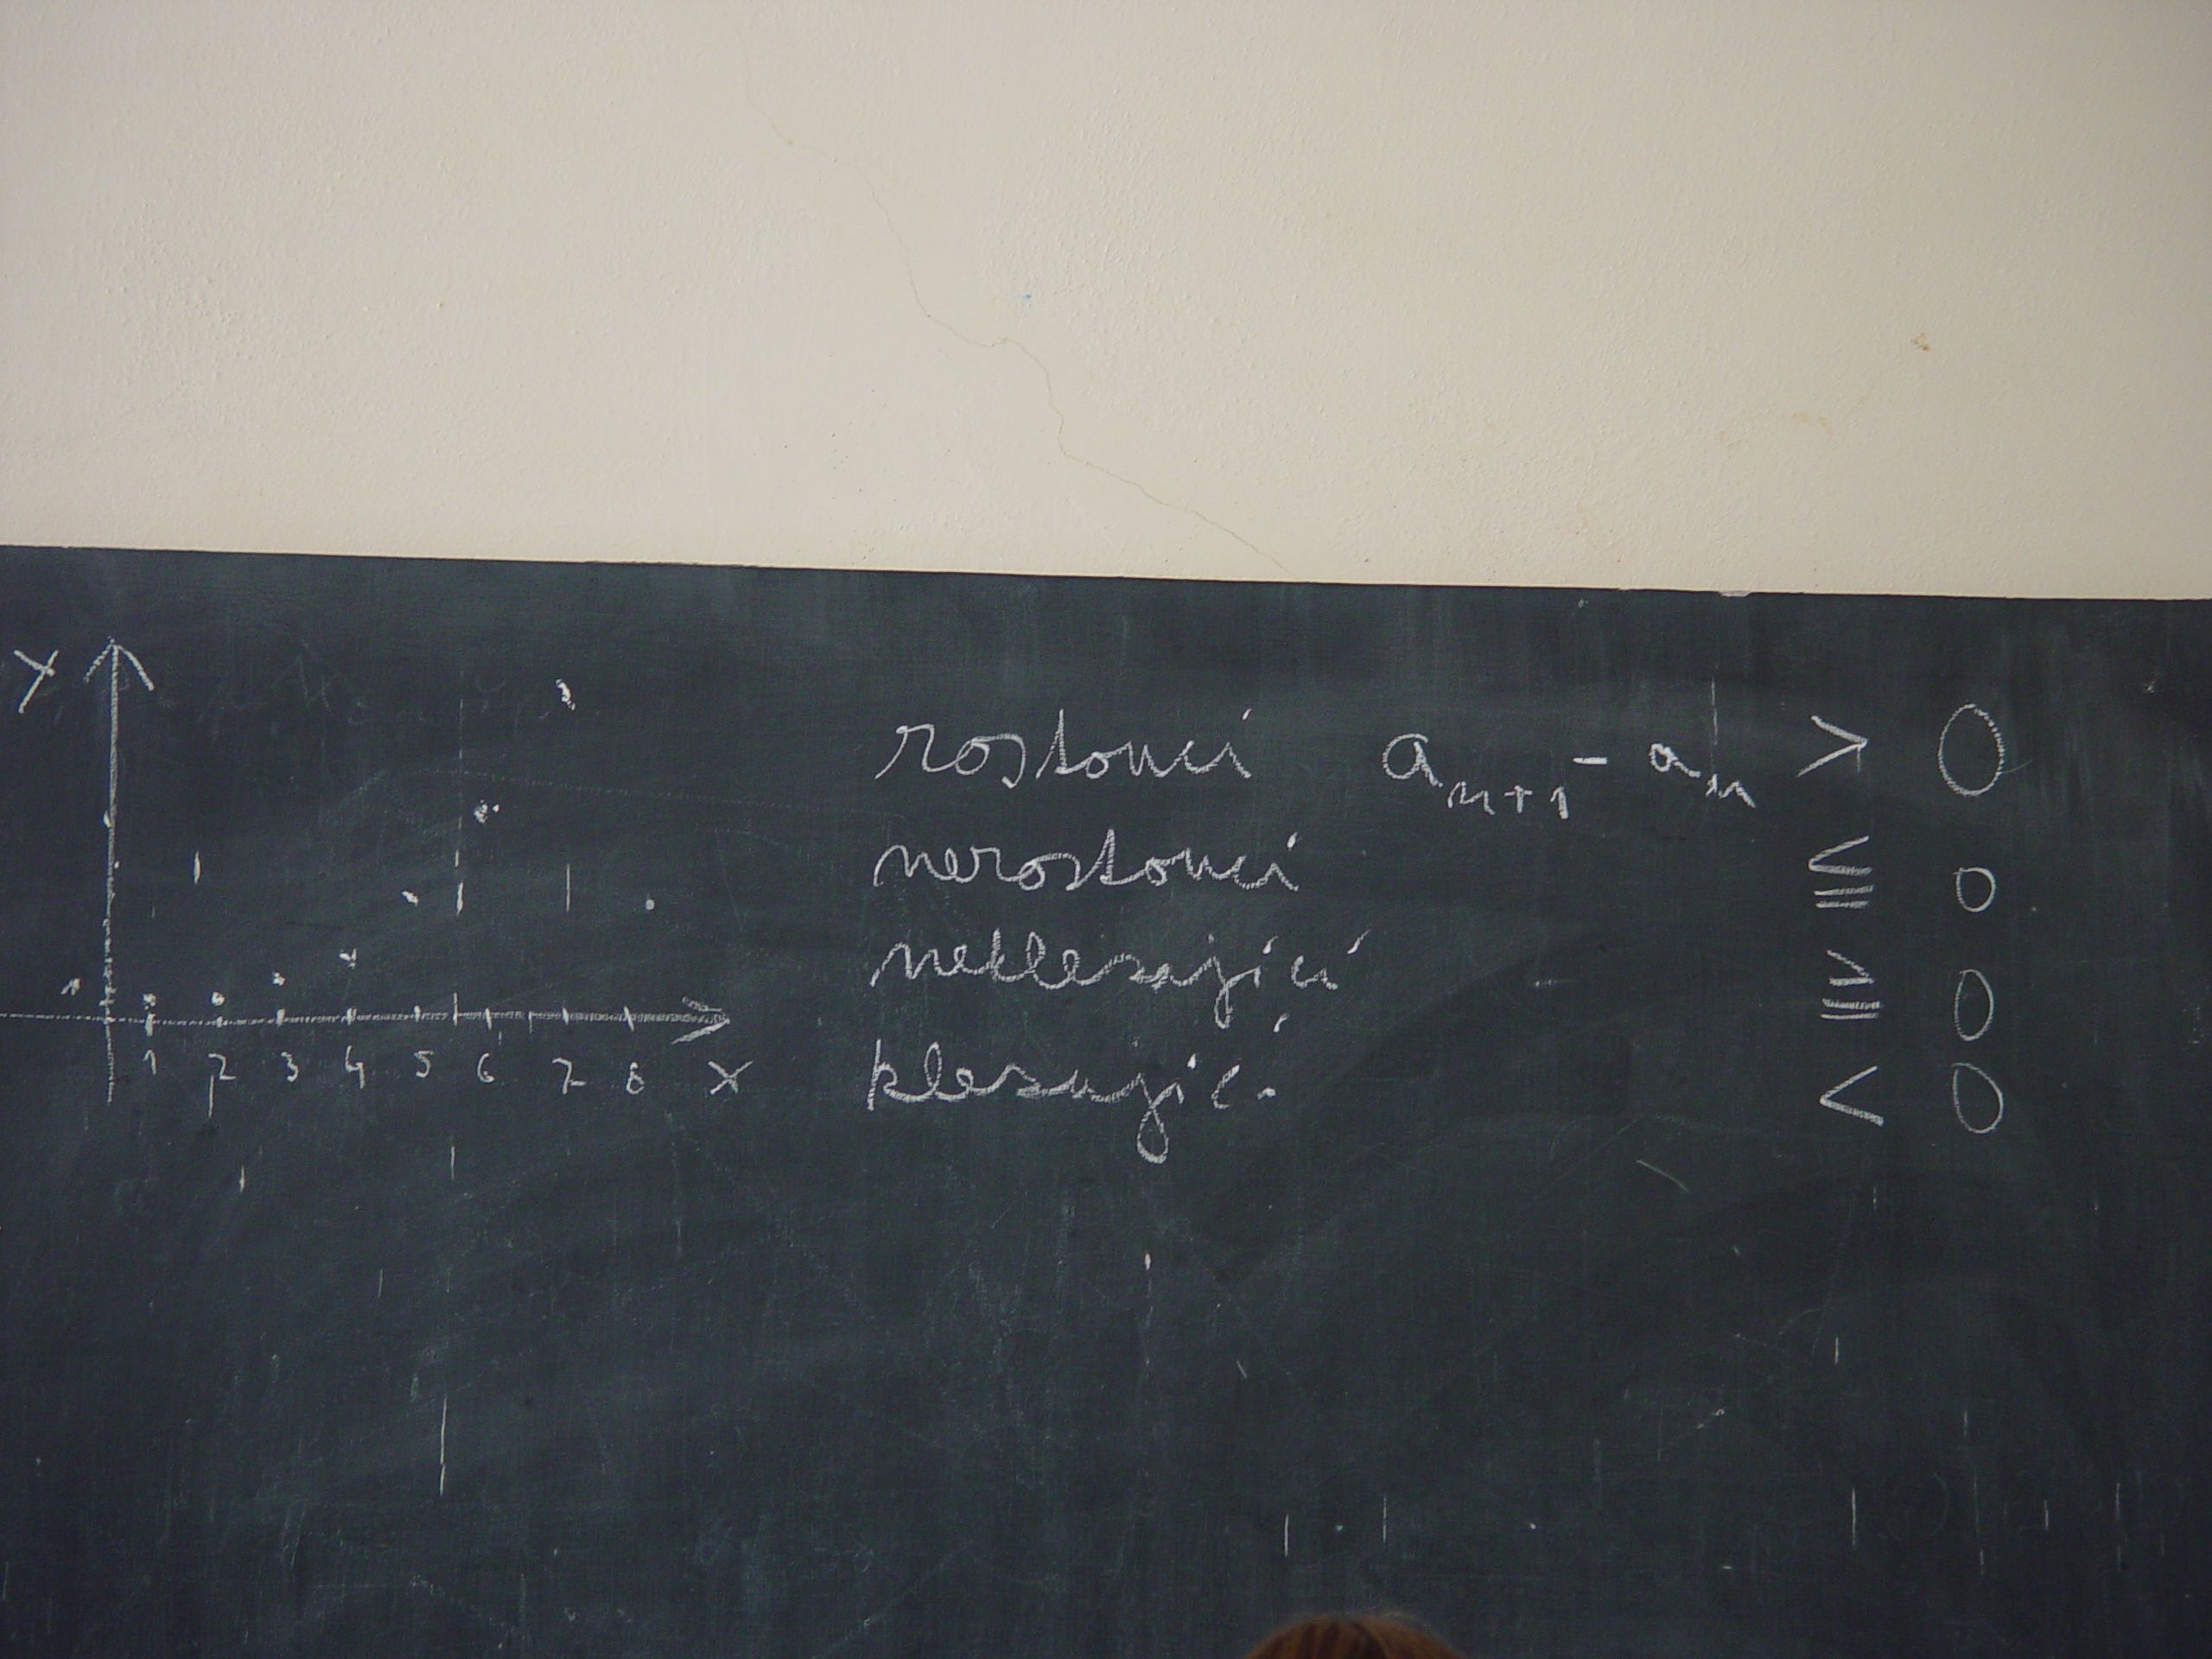 y
rostoucí a_{n+1} - a_n > 0
nerostoucí ≦ 0
neklesající ≧ 0
klesající < 0
1
1 2 3 4 5 6 7 8 x